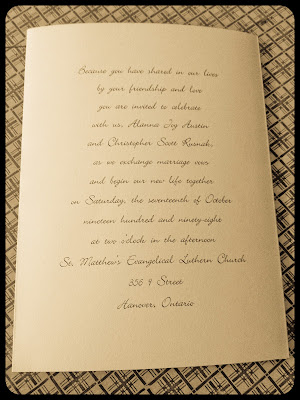 Because you have shared in our lives
by your friendship and love
you are invited to celebrate
with us, Alanna Joy Austin
and Christopher Scott Rusnak,
as we exchange marriage vows
and begin our new life together
on Saturday, the seventeenth of October
nineteen hundred and ninety-eight
at two o'clock in the afternoon
St. Matthew's Evangelical Luthern Church
356 9 Street
Hanover, Ontario